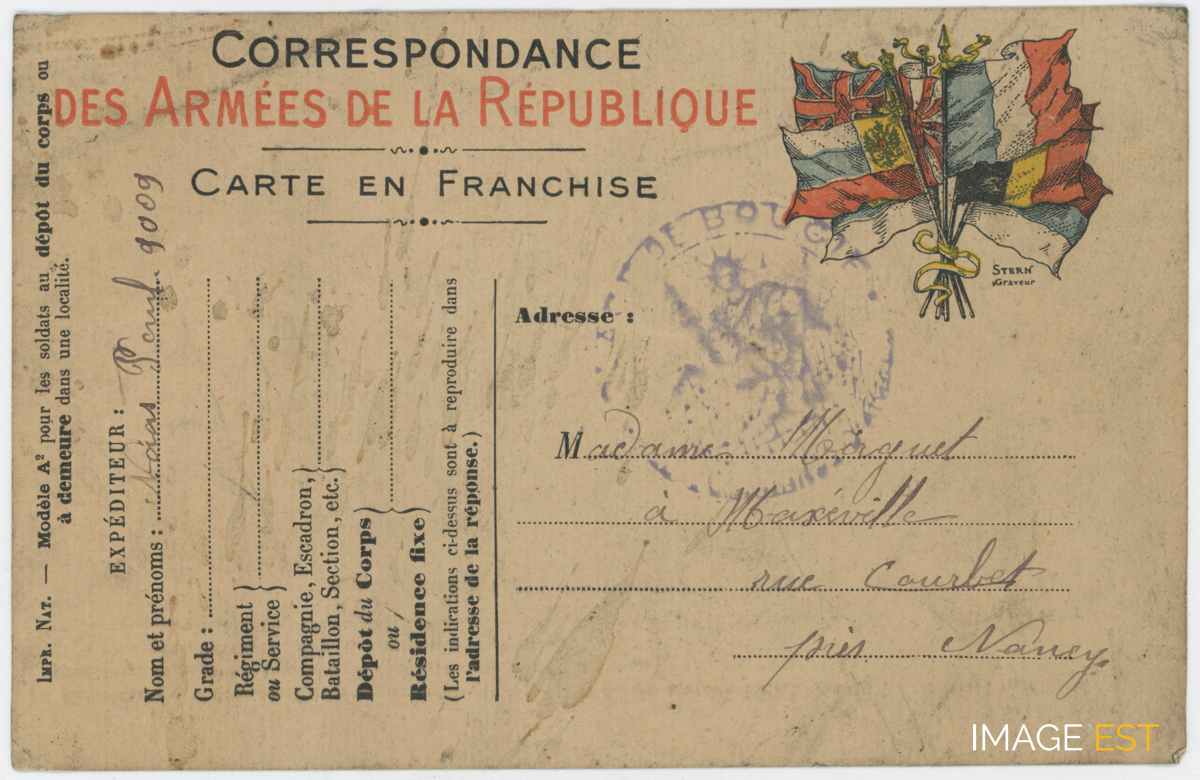 CORRESPONDANCE
DES ARMÉES DE LA RÉPUBLIQUE
CARTE EN FRANCHISE
IMPR. NAT. — Modèle A² pour les soldats au dépôt du corps ou
à demeure dans une localité.
EXPÉDITEUR :
Nom et prénoms : Paul 9009
Grade :
Régiment
ou Service
Compagnie, Escadron,
Bataillon, Section, etc.
Dépôt du Corps
ou
Résidence fixe
(Les indications ci-dessus sont à reproduire dans
l'adresse de la réponse.)
STERN
Graveur
DE BOUGIE
Adresse :
Madame
à Maxéville
rue Courbet
près Nancy.
IMAGE EST